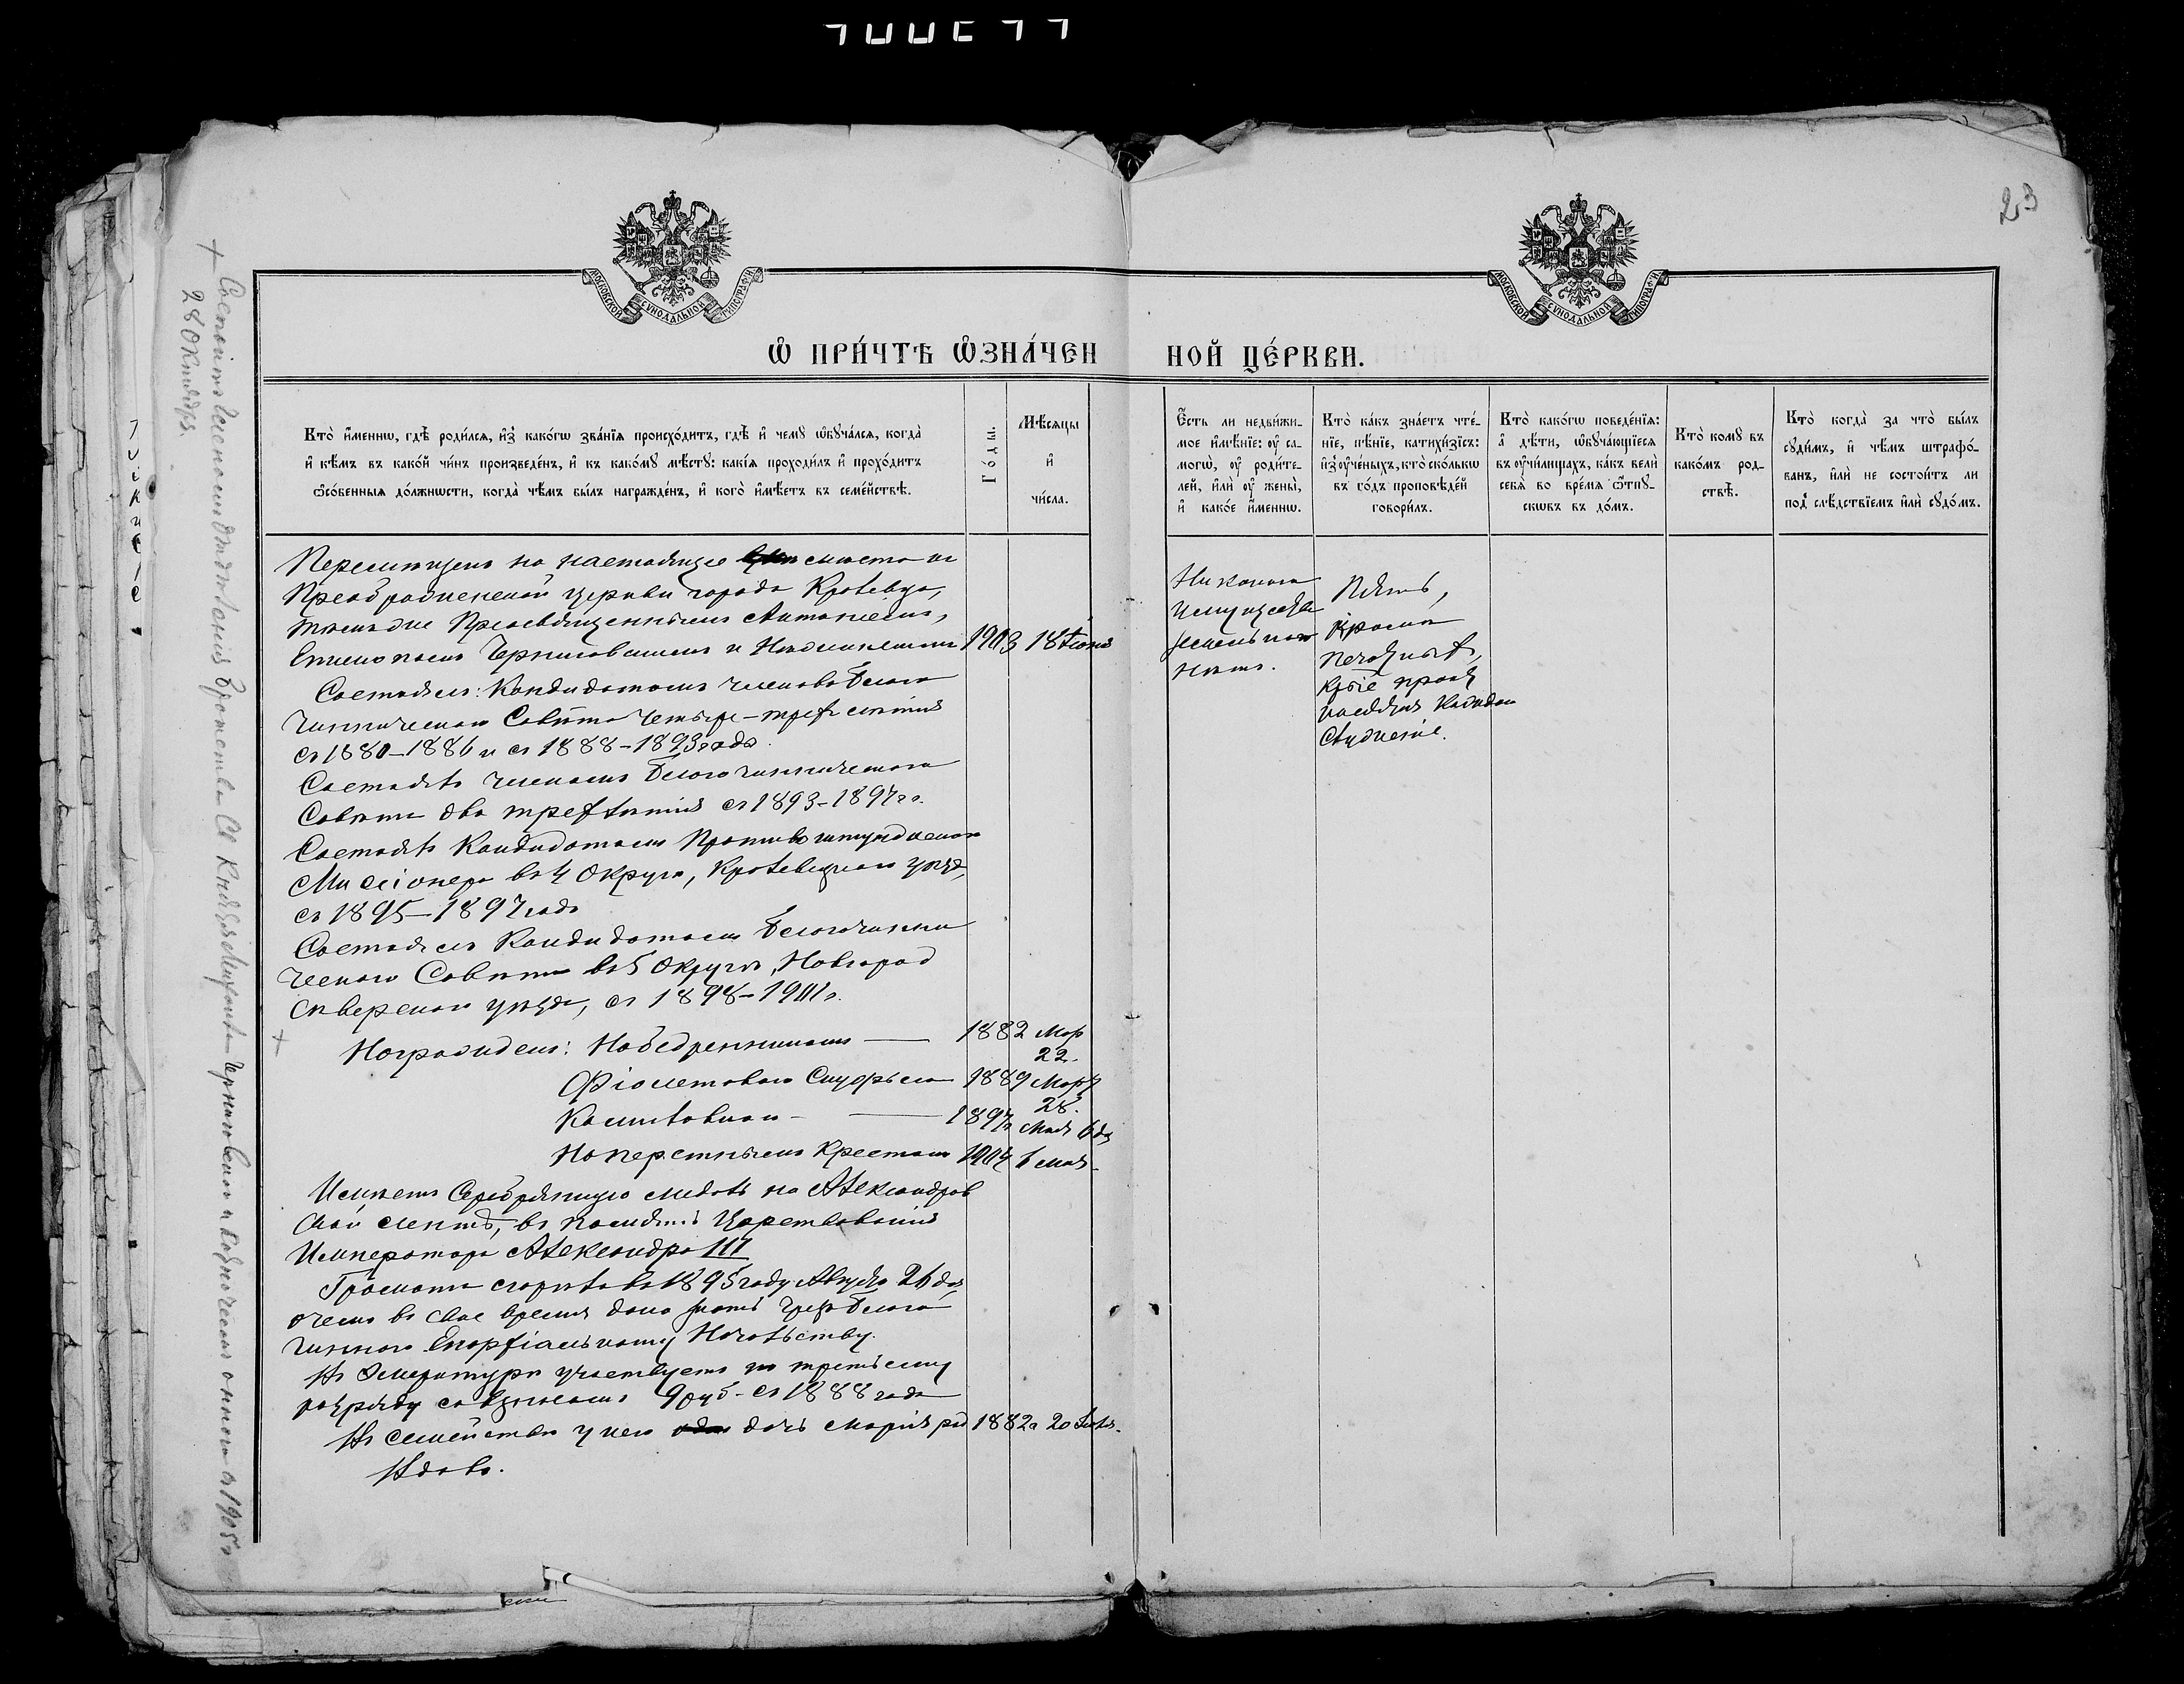 23
МОСКОВСКОЙ СѴНОДАЛЬНОЙ ТИПОГРАФІИ
МОСКОВСКОЙ СѴНОДАЛЬНОЙ ТИПОГРАФІИ
Ѽ ПРИ́ЧТѢ Ѽ҆ЗНА́ЧЕН НОЙ ЦЕ́РКВИ.
Кто̀ и҆́меннѡ, гдѣ̀ роди́лся, и҆з̾ како́гѡ зва́нїя происхо́дитъ, гдѣ̀ и҆ чемꙋ̀ ѡ҆бꙋча́лся, когда̀
и҆ кѣ́мъ въ како́й чи́нъ произведе́нъ, и҆ къ како́мꙋ мѣ́стꙋ: какі́я проходи́лъ и҆ прохо́дитъ
ѻ҆со́бенныя до́лжнѡсти, когда̀ чѣ́мъ бы́лъ награжде́нъ, и҆ кого̀ и҆мѣ́етъ въ семе́йствѣ.
Го́ды.
Мѣ́сяцы
и҆
чи́сла.
Е҆́сть ли недви́жи-
мое и҆мѣ́нїе: ᲂу҆ са-
могѡ̀, ᲂу҆ роди́те-
лей, и҆лѝ ᲂу҆ жены̀,
и҆ како́е и҆́меннѡ.
Кто̀ ка́къ зна́етъ чте́-
нїе, пѣ́нїе, катихи́зїсъ:
и҆з̾ ᲂу҆че́ныхъ, кто̀ ско́лькѡ
въ го́дъ проповѣ́дей
говори́лъ.
Кто̀ како́гѡ поведе́нїя:
а҆ дѣ́ти, ѡ҆бꙋча́ющїеся
въ ᲂу҆чи́лищахъ, ка́къ велѝ
себя̀ во вре́мя ѿпꙋ-
скѡвъ въ до́мъ.
Кто̀ комꙋ̀ въ
како́мъ род-
ствѣ̀.
Кто̀ когда̀ за что̀ бы́лъ
сꙋди́мъ, и҆ чѣ́мъ штрафо́-
ванъ, и҆лѝ не состои́тъ ли
под̾ слѣ́дствїемъ и҆лѝ сꙋдо́мъ.
Перемѣщенъ на настоящее мѣсто къ
Преображенской церкви города Кролевца,
тѣмъ же Преосвященнымъ Антоніемъ,
Епископомъ Черниговскимъ и Нѣжинскимъ 1903 18 Іюня
Состоялъ: Кандидатомъ членовъ Благо
чинническаго Совѣта четыре-трехлѣтія
съ 1880–1886 и съ 1888–1893 года.
Состоялъ членомъ Благочинническаго
Совѣта два трехлѣтія съ 1893–1897 гг.
Состоялъ Кандидатомъ Противоштундискаго
Миссіонера въ 4 Округѣ, Кролевецкаго уѣзда,
съ 1895–1897 года
Состоялъ Кандидатомъ Благочинни
ческаго Совѣта въ 5 Округѣ, Новгород
сѣверскаго уѣзда, съ 1898–1901 г.
+
Награжденъ: Набедренникомъ — 1882 Мар
22.
Фіолетовою Скуфьею 1889 Мар
28.
Камилавкою — 1897 г. Мая 6 дн
Наперснымъ Крестомъ 1904 6 мая.
Имѣетъ Серебрянную медаль на Александров
ской лентѣ, въ память Царствованія
Императора Александра III
Грамота сгорѣла въ 1895 году Августа 26 дня
о чемъ въ свое время дано знать чрезъ Благо
чиннаго Епархіальному Начальству.
Въ Эмеритурѣ участвуетъ по третьему
разряду со взносомъ 9 руб. съ 1888 года
Въ Семействѣ у него дочь Марія род 1882 г. 20 Іюля.
Вдовъ.
Никакого
имущества
не имѣетъ.
Пѣть,
Катихи-
+ Состоитъ Членомъ братства Св Князя Михаила Черниговскаго съ 1905 г
28 Октября.